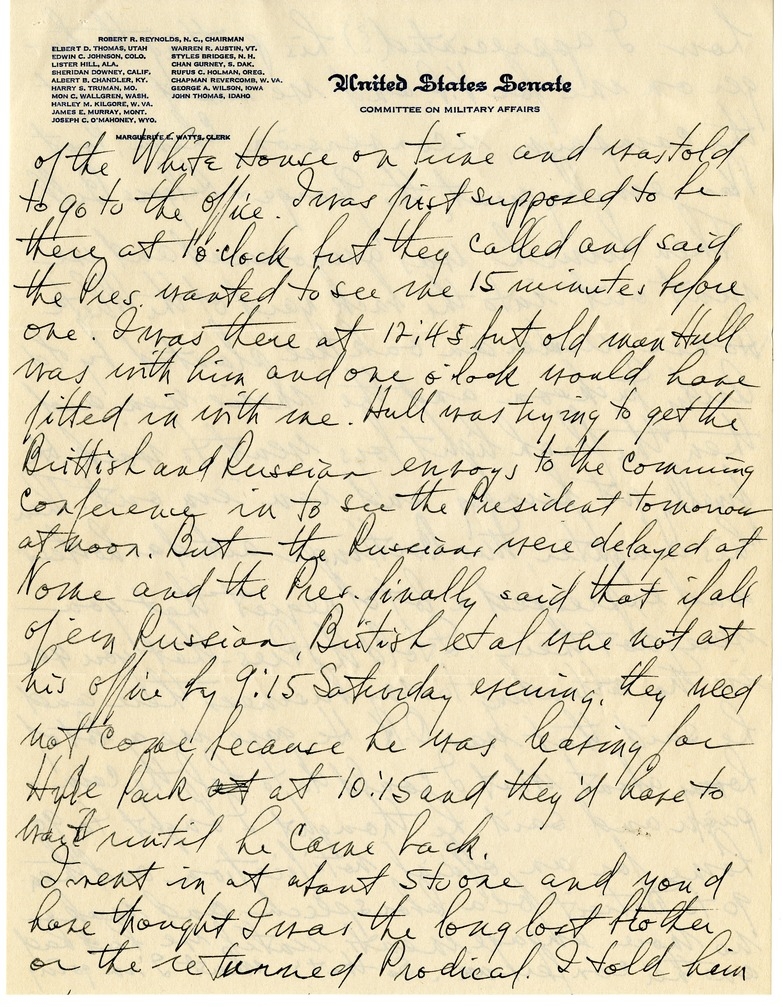 ROBERT R. REYNOLDS, N. C., CHAIRMAN
ELBERT D. THOMAS, UTAH
EDWIN C. JOHNSON, COLO.
LISTER HILL, ALA.
SHERIDAN DOWNEY, CALIF.
ALBERT B. CHANDLER, KY.
HARRY S. TRUMAN, MO.
MON C. WALLGREN, WASH.
HARLEY M. KILGORE, W. VA.
JAMES E. MURRAY, MONT.
JOSEPH C. O'MAHONEY, WYO.
WARREN R. AUSTIN, VT.
STYLES BRIDGES, N. H.
CHAN GURNEY, S. DAK.
RUFUS C. HOLMAN, OREG.
CHAPMAN REVERCOMB, W. VA.
GEORGE A. WILSON, IOWA
JOHN THOMAS, IDAHO
MARGUERITE E. WATTS, CLERK
United States Senate
COMMITTEE ON MILITARY AFFAIRS
of the White House on time and was told
to go to the office. I was first supposed to be
there at 1 o'clock but they called and said
the Pres. wanted to see me 15 minutes before
one. I was there at 12:45 but old man Hull
was with him and one o'clock would have
fitted in with me. Hull was trying to get the
Brittish and Russian envoys to the comming
conference in to see the President tomorrow
at noon. But — the Russians were delayed at
Nome and the Pres. finally said that if all
of em Russian, British et al were not at
his office by 9:15 Saturday evening, they need
not come because he was leaving for
Hyde Park at at 10:15 and they'd have to
wait until he came back.
I went in at about 5 to one and you'd
have thought I was the long lost brother
or the returned Prodical. I told him